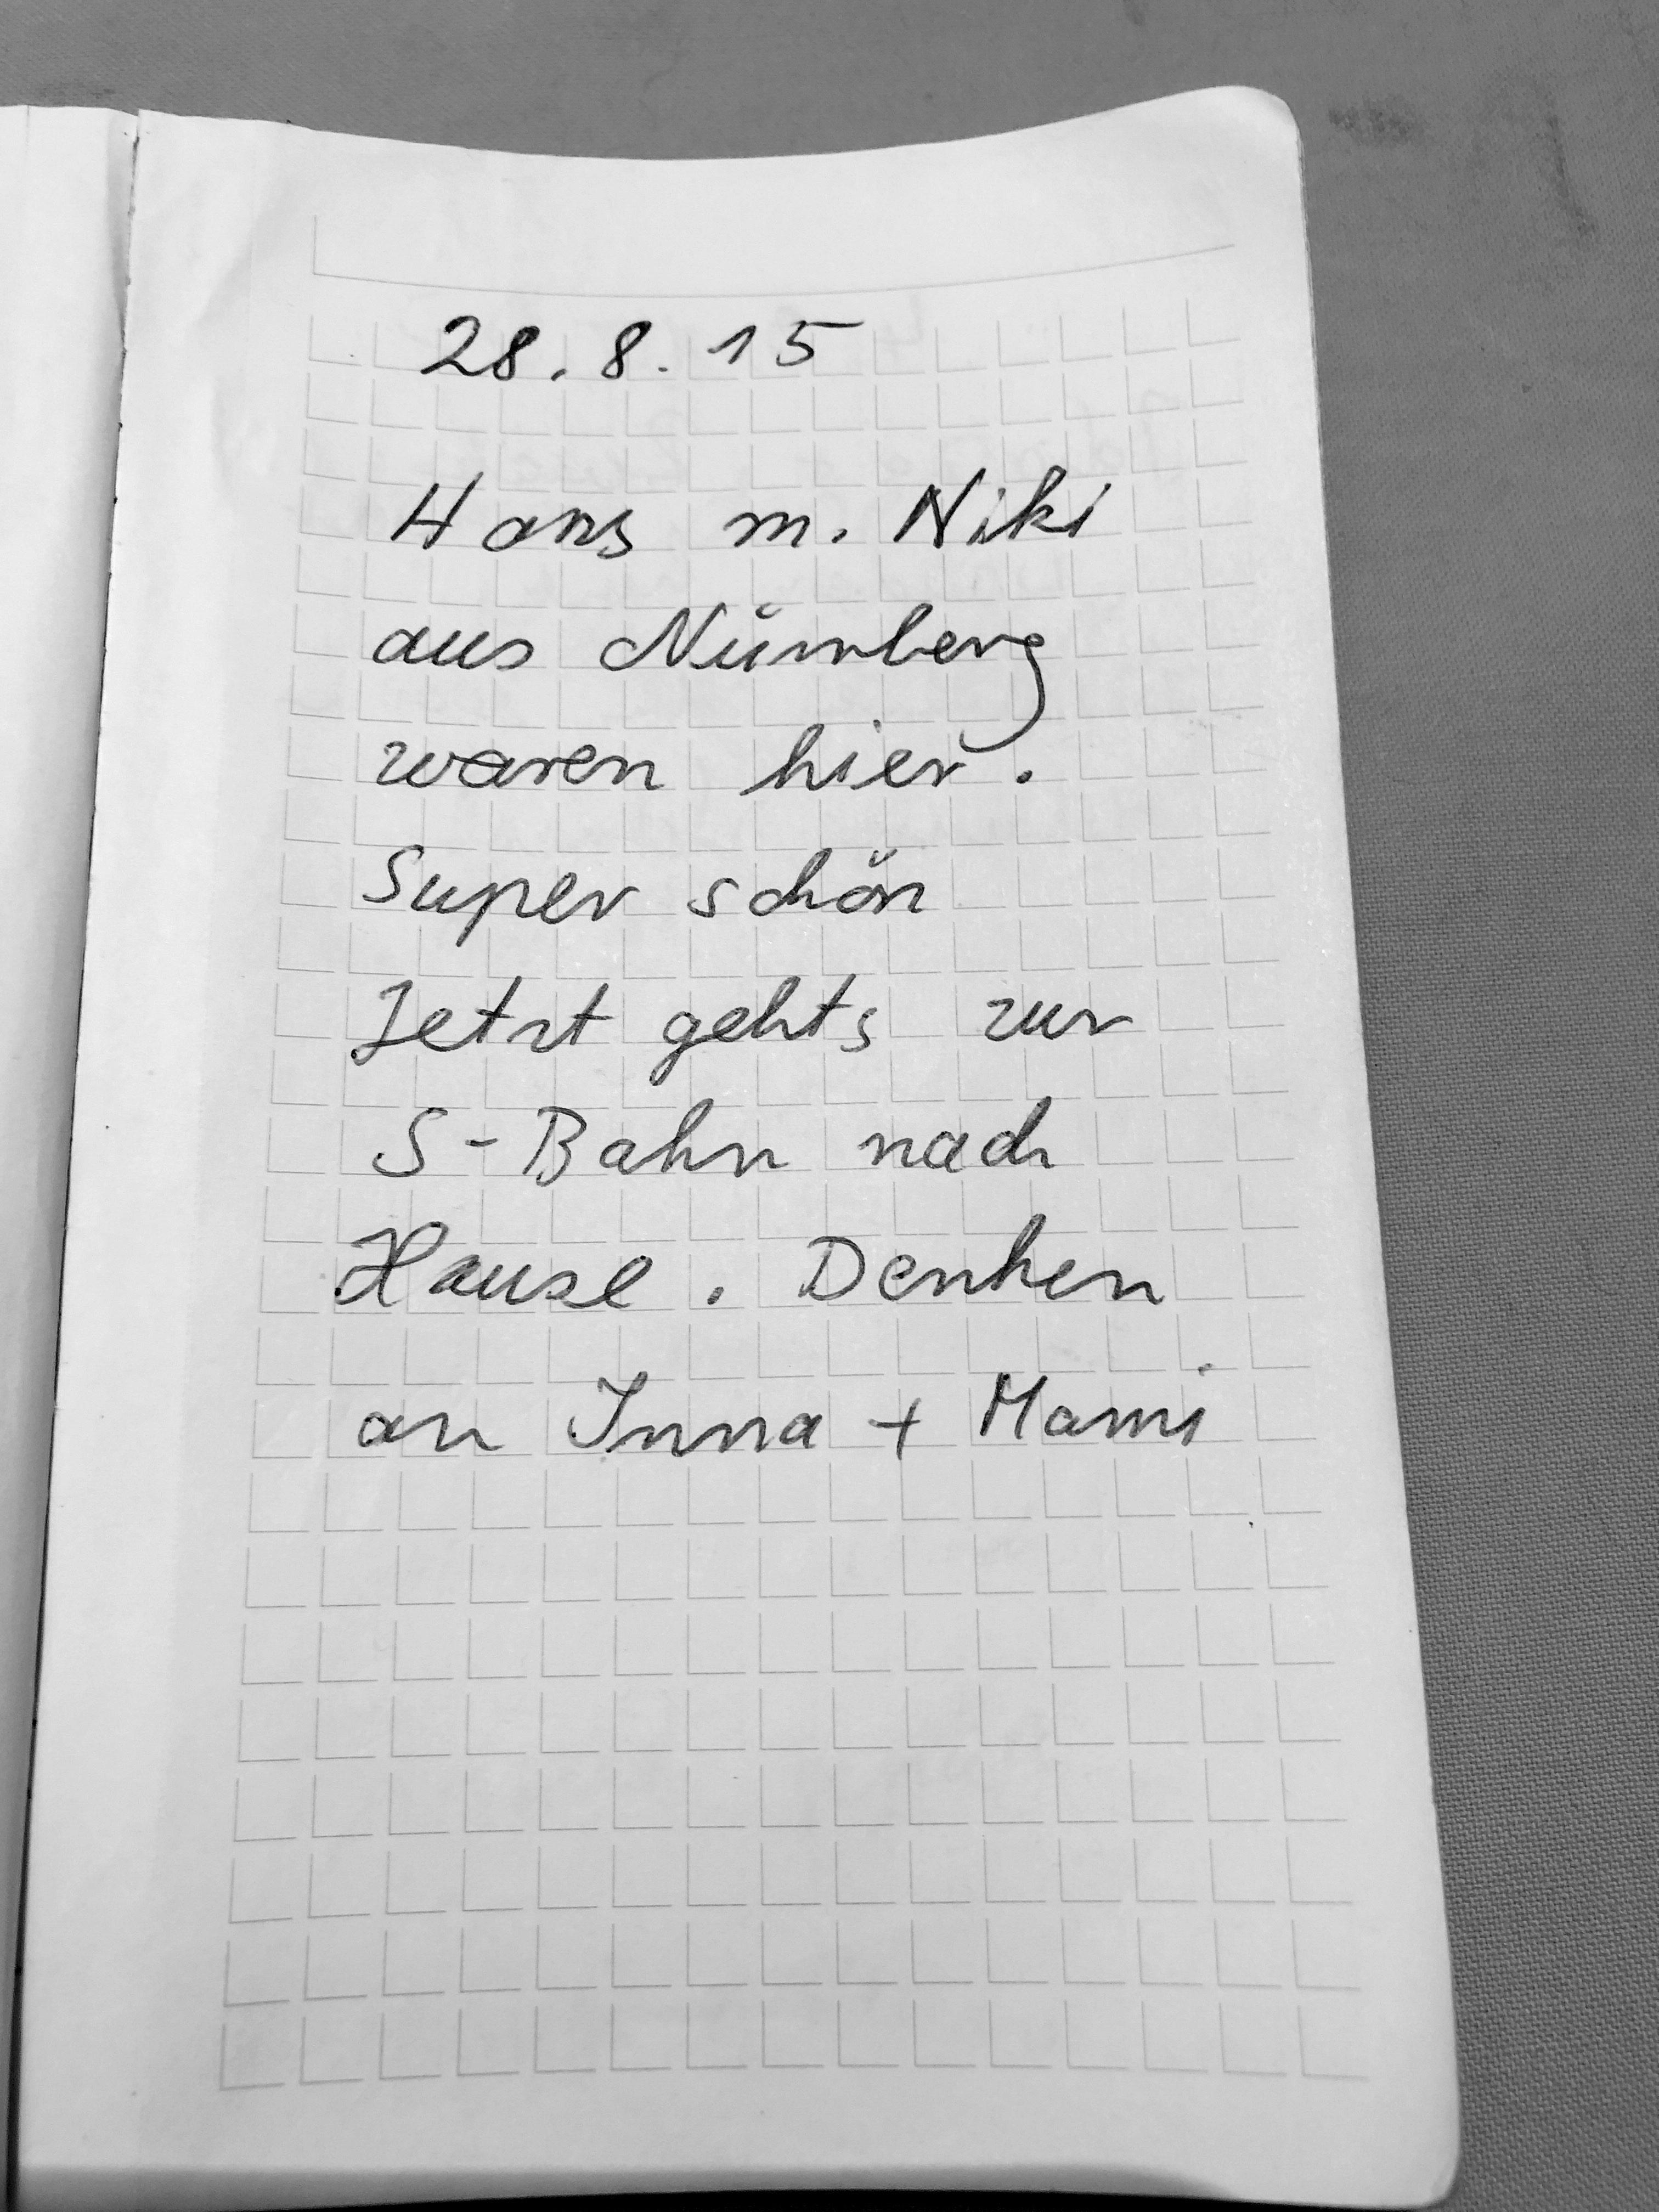 28.8.15
Hans m. Niki
aus Nürnberg
waren hier.
Super schön
Jetzt gehts zur
S-Bahn nach
Hause. Denken
an Inna + Mami